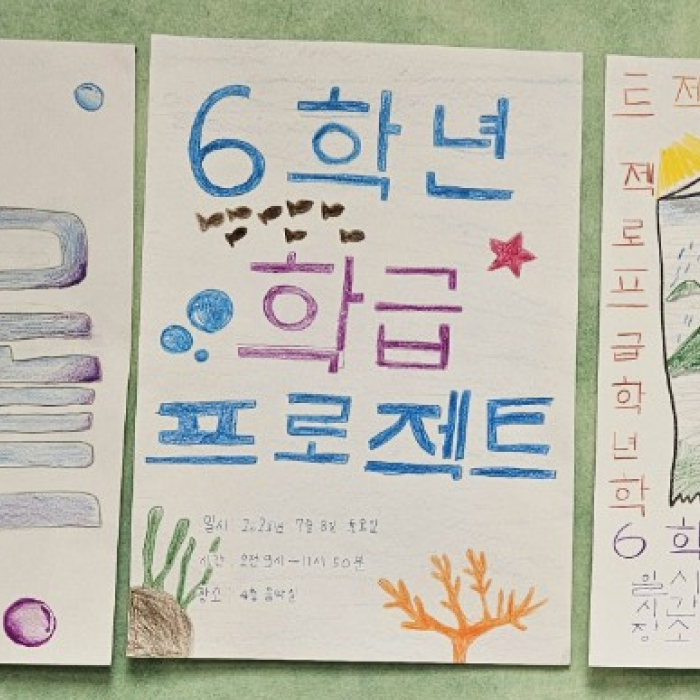 6학년
학급
프로젝트
일시 7월 8일
시간 오전 9시-11시 50분
장소 4층 음악실
젝
로
프
급
학
년
학
6 학
일시
시간
장소